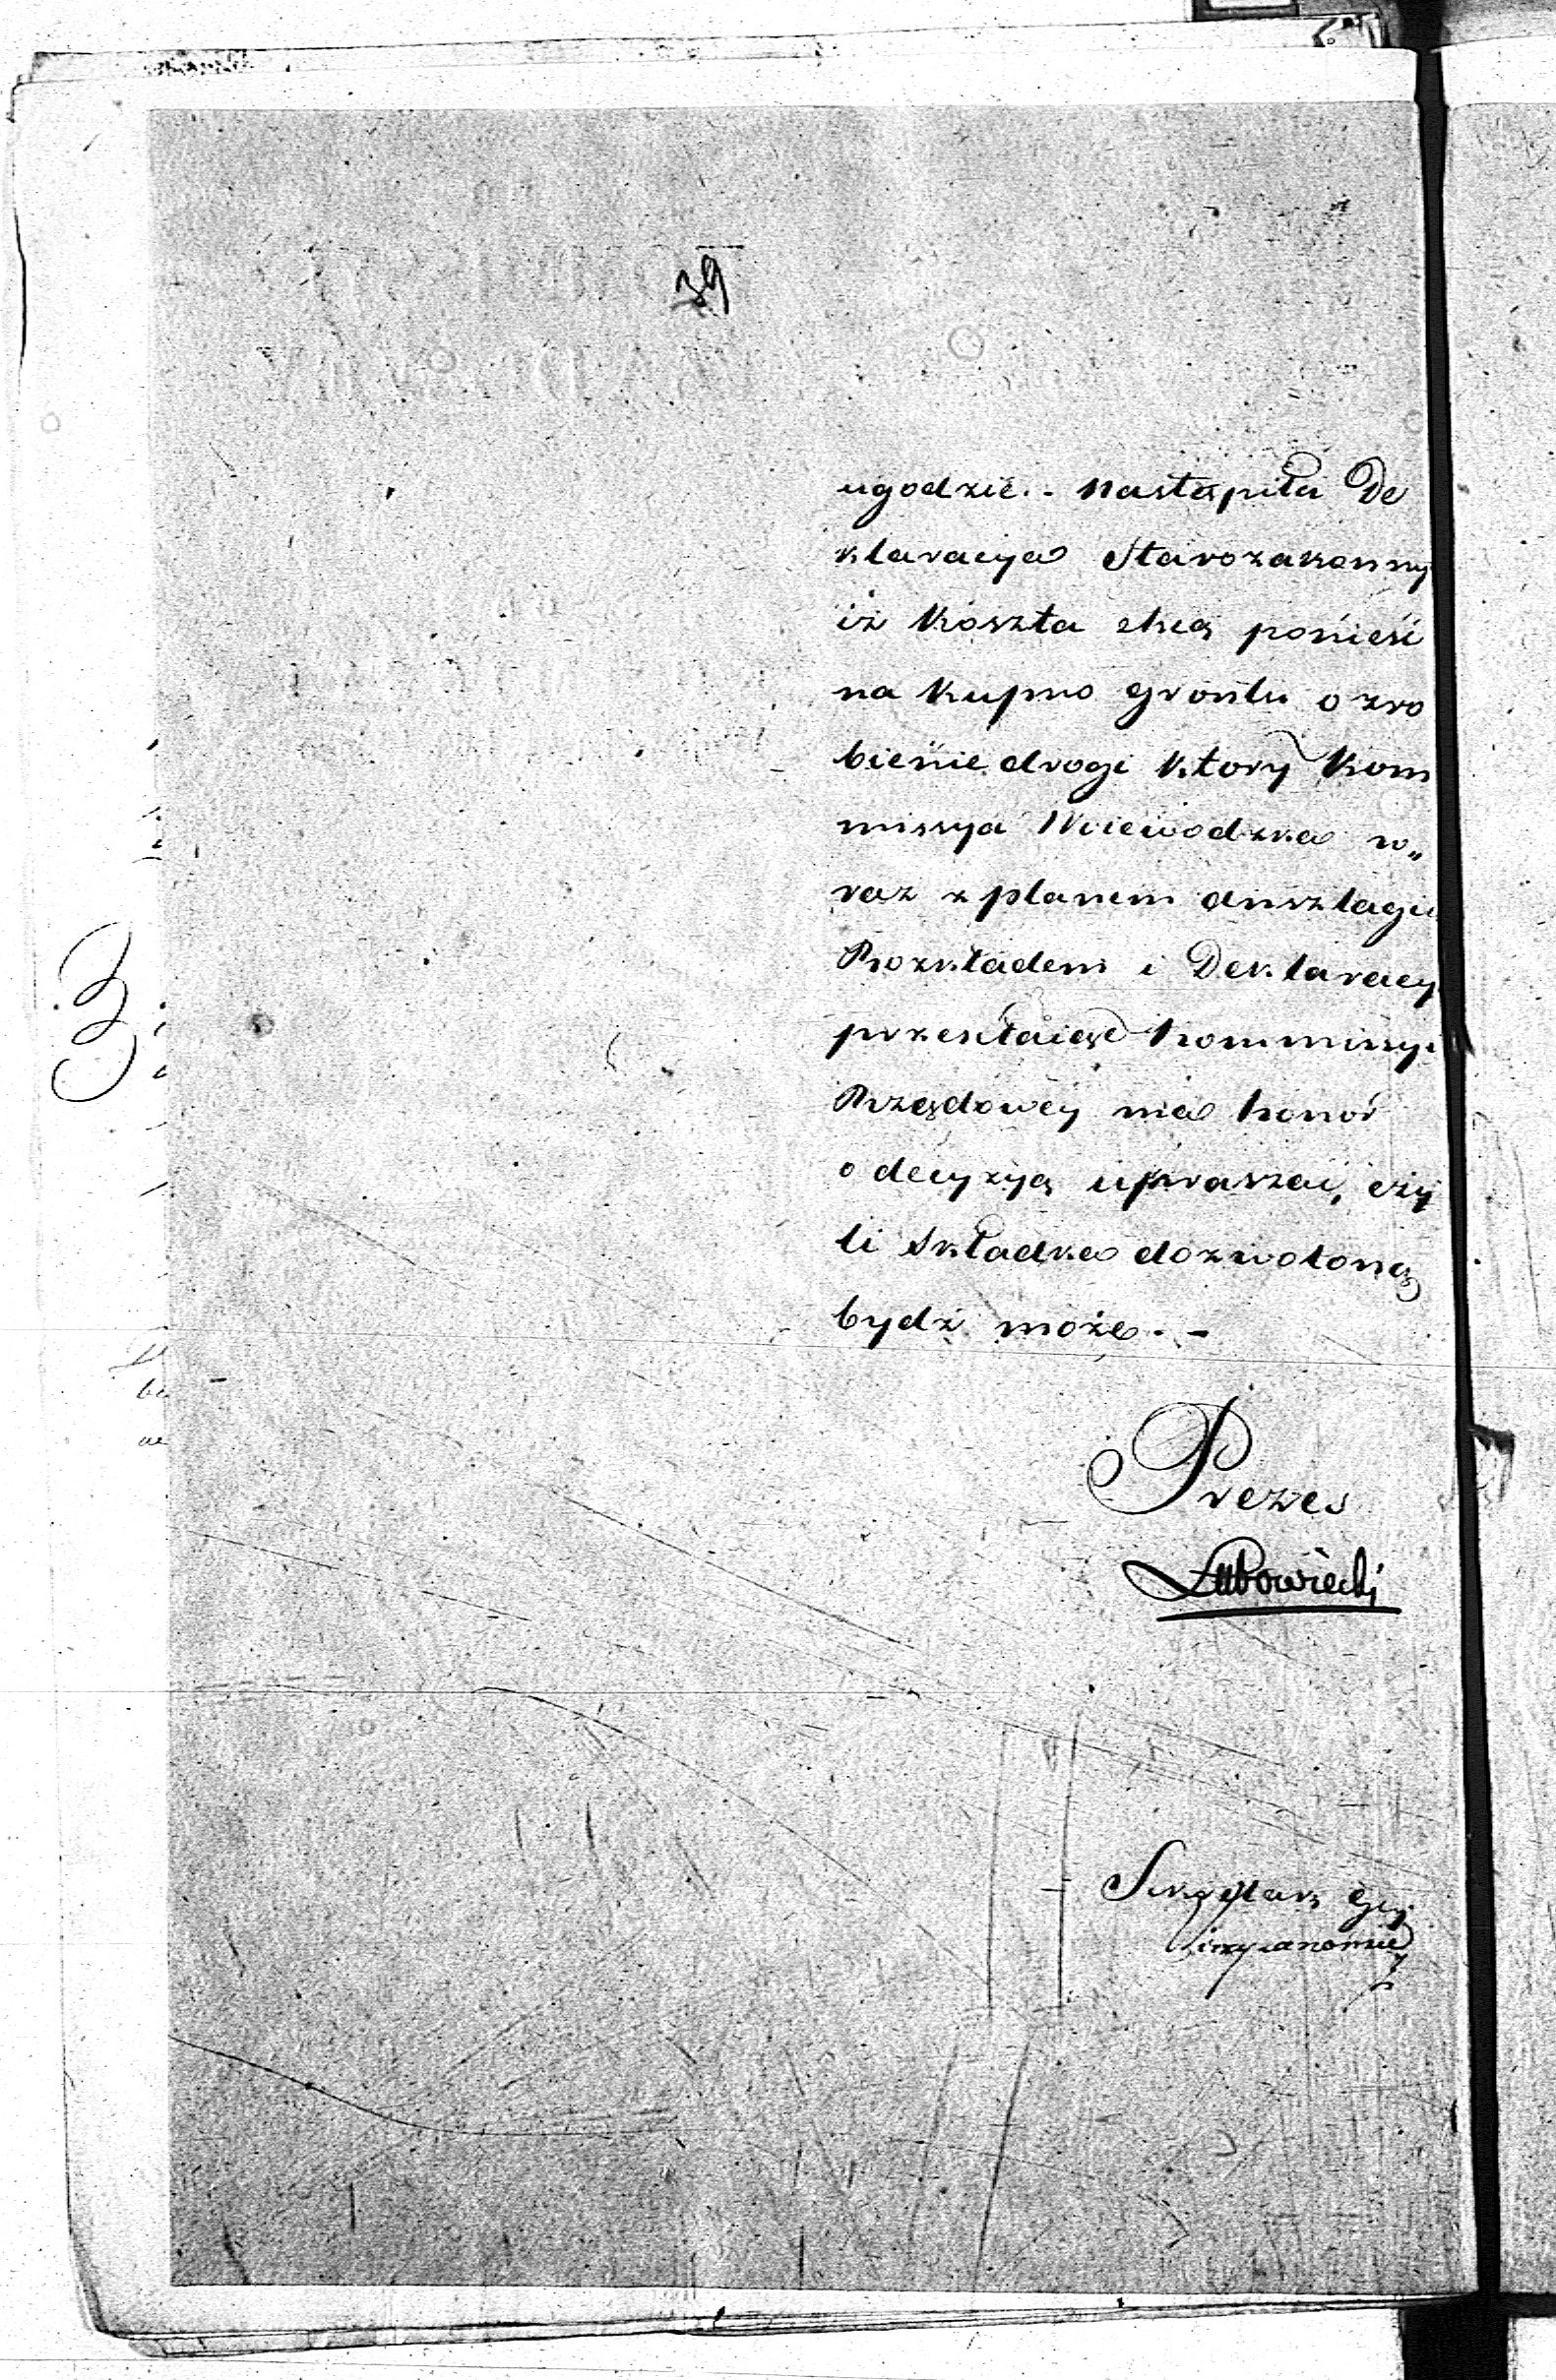 39
ugodzie. - nastąpiła De
klaracya Starozakonny
iż koszta chcą ponieść
na kupno grontu o zro
bienie drogi ktory Kom
missya Woiewodzka w„
raz z planem anszlagie
Rozkładem i Deklaracy
przesełaiąc Kommissyi
Rządowey ma honor
o decyzyą upraszać, czy
li składka dozwoloną
bydź może. -
Prezes
Lubowiecki
Sekretarz